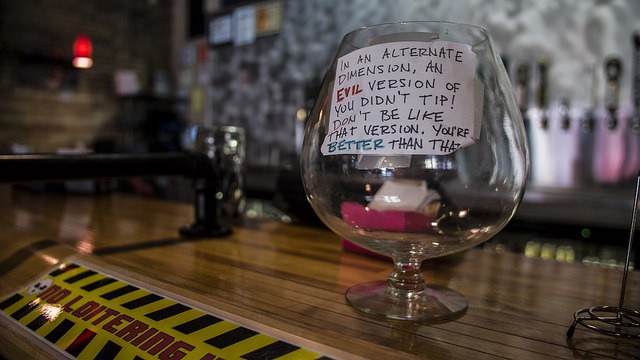 IN AN ALTERNATE
DIMENSION, AN
EVIL VERSION OF
YOU DIDN'T TIP!
DON'T BE LIKE
THAT VERSION. YOU'RE
BETTER THAN THAT
NO LOITERING